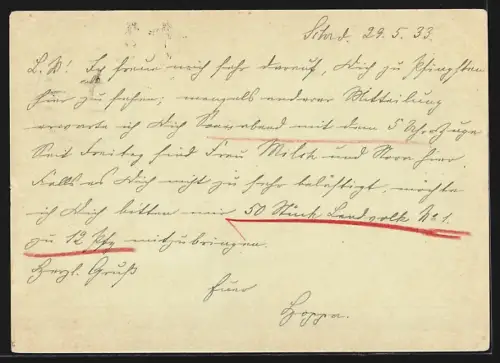 Schd. 29.5.33.
L. W! Ich freue mich sehr darauf, Dich zu Pfingsten
hier zu sehen; mangels anderer Mitteilung
erwarte ich Dich Sonnabend mit dem 5 Uhr Zuge
Seit Freitag sind Frau und hier.
Falls es Dich nicht zu sehr belästigt, möchte
ich Dich bitten mir 50 Stück Landvolk No 1.
zu 12 Pfg mitzubringen.
Herzl. Gruß
Euer
Hoppa.